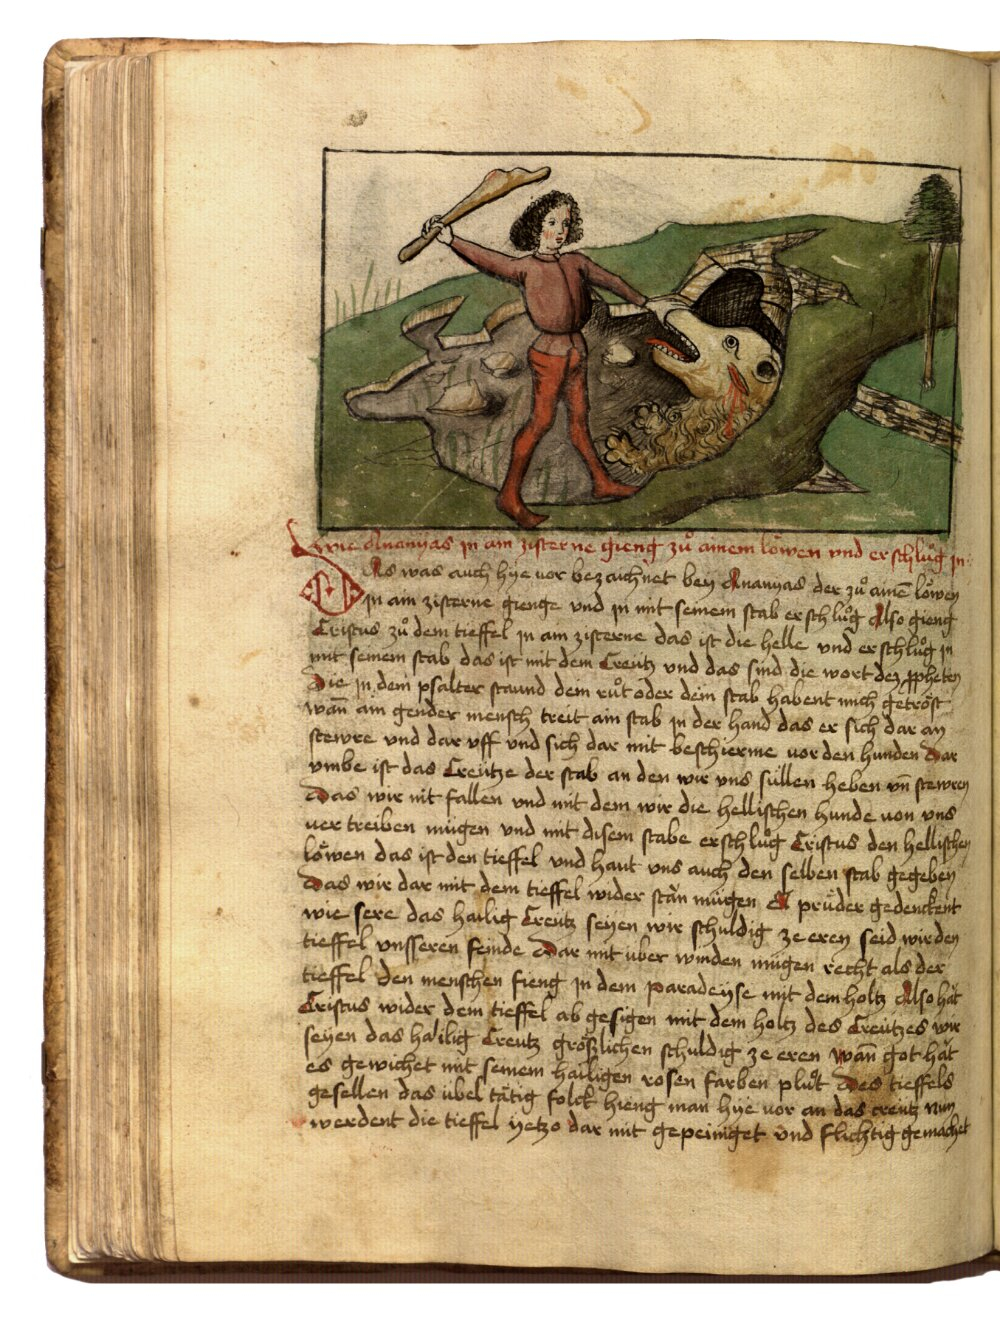 wie Ananyas in am zisterne gieng zů ainem löwen vnd erschlůg in
DAs was auch hye vor bezaichnet bey Ananyas der zů ainē löwen
in am zisterne gienge vnd in mit seinem stab erschlůg Also gieng
Cristus zů dem tieffel in ain zisterne das ist die helle vnd erschlůg in
mit seinem stab das ist mit dem Creütz vnd das sind die wort dez ppheten
Die in dem psalter staund dein růt oder dein stab habent mich getröst
wañ ain gender mensch treit ain stab in der hand das er sich dar an
stewre vnd dar vff vnd sich dar mit beschierme vor den hunden Dar
vmbe ist das Creütze der stab an den wir vns süllen heben vñ stewren
Das wir nit fallen vnd mit dem wir die hellischen hunde von vns
ver treiben mügen vnd mit disem stabe erschlůg Cristus den hellischen
löwen das ist den tieffel vnd haut vns auch den selben stab gegeben
Das wir dar mit dem tieffel wider stän mügen A prüder gedenckent
wie sere das hailig Creutz seyen wir schuldig ze eren seid wir den
tieffel vnsseren feinde Dar mit über winden mügen recht als der
tieffel den menschen fieng in dem paradeyse mit dem holtz Also hät
Cristus wider dem tieffel ab gesigen mit dem holtz des Creützes wir
seyen das hailig Creutz größlichen schuldig ze eren wañ got hät
es gewichet mit seinem hailigen rosen farben plůt Des tieffels
gesellen das übel tätig folck hieng man hye vor an das creutz nun
werdent die tieffel yetzo dar mit gepeiniget vnd flichtig gemachet